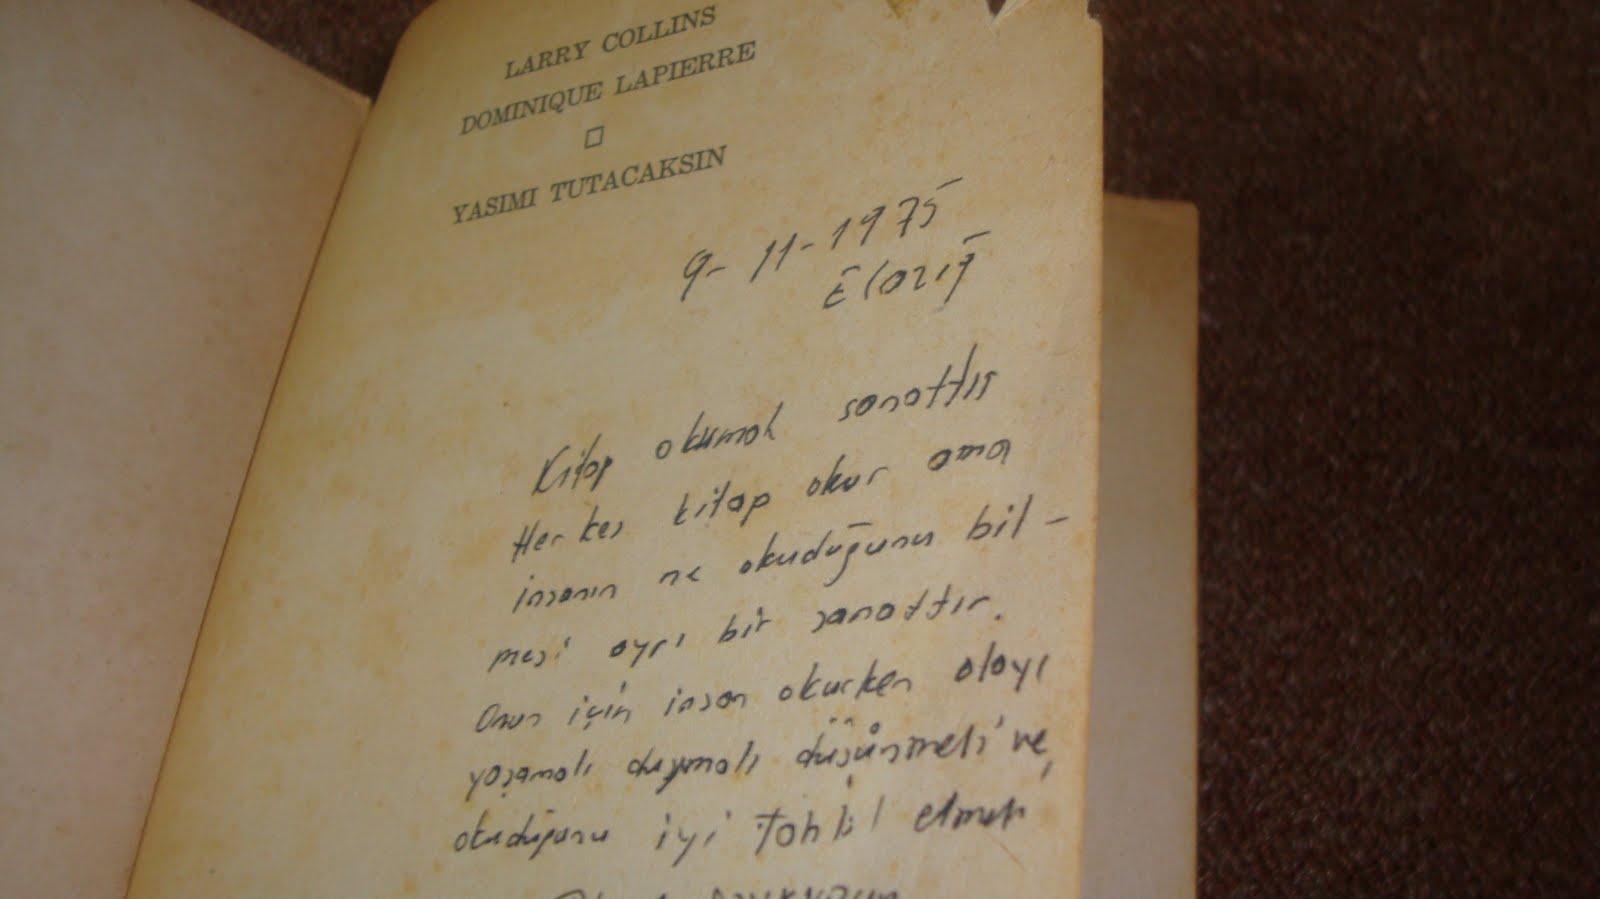 LARRY COLLINS
DOMINIQUE LAPIERRE
YASIMI TUTACAKSIN
9- 11-1975
Elazığ
Kitap okumak sanattır
Herkes kitap okur ama
insanın ne okuduğunu bil-
mesi ayrı bir sanattır.
Onun için insan okurken olayı
yaşamalı duymalı düşünmeli ve
okuduğunu iyi tahlil etmeli